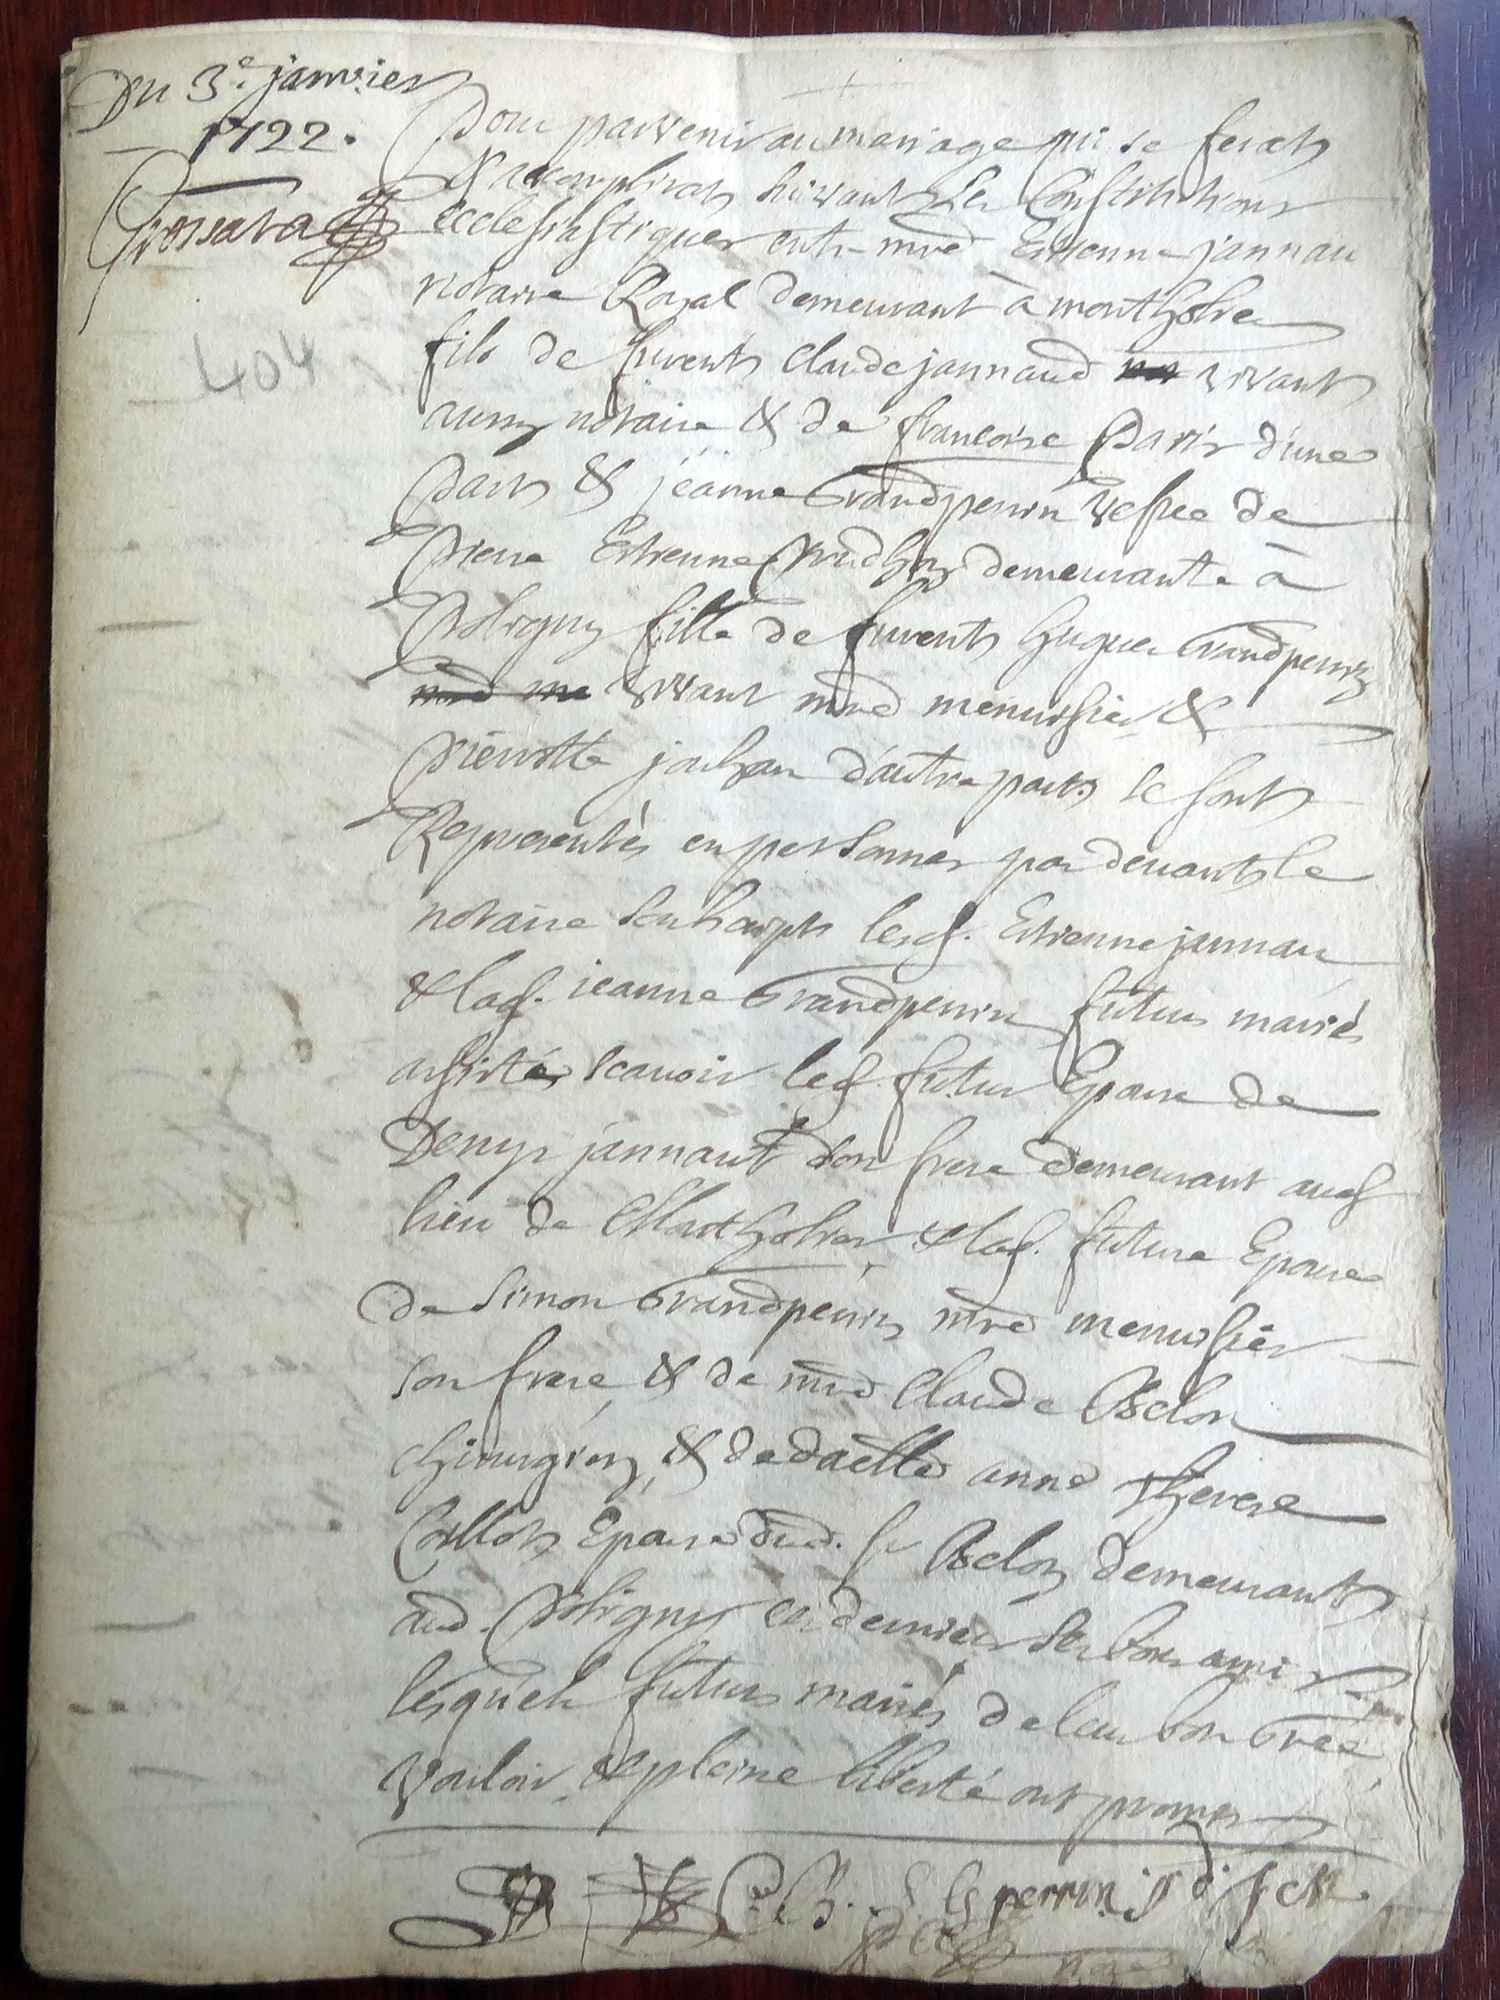 Du 3e janvier
1722.
Grossata
404
Pour parvenir au mariage qui se ferat
& accomplirat suivant les Constitutions
ecclesiastiques entre mre Estienne jannau
notaire Royal demeurant à montholier
fils de furent Claude jannaud vivant
aussy notaire & de francoise Paris d'une
part & jeanne Grandperrin vefve de
Pierre Estienne demeurante à
Poligny fille de furent hugue Grandperrin
vivant mre menusier &
Pierrotte d'autre part se sont
Representés en personnes par devant le
notaire soubscript lesd. Estienne jannau
& lad. jeanne Grandperrin futurs mariés
assistés scavoir led. futur Epoux de
Denys jannaut son frere demeurant aud
lieu de Montholier & lad. future Epouse
de Simon Grandperrin mre menusier
son frere & de mre Claude Belon
chirurgien & de daelle anne therese
Callot Epouse dud. sr Belon demeurant
aud. Poligny ces derniers ses bons amis
lesquels futurs mariés de leur bon Gree
vouloir & pleine liberté ont promis
C. B. perrin